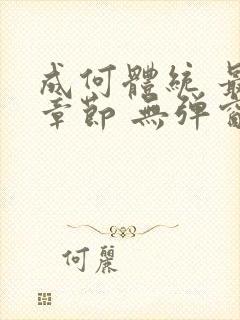 成何體統 最
章節 無彈窗
何麗